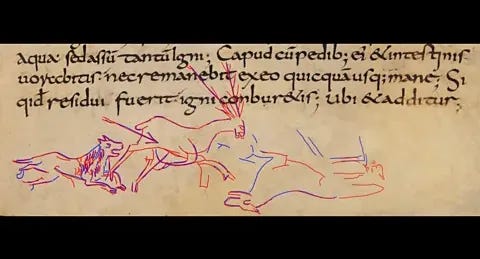 aqua sedassū tantūigni; Capud cūpedib; ei' &intestinis
uorabitis· necremanebit exeo quicquāusq; mane; Si
qid residui fuerit· igni conbur&is; Ubi &additur;